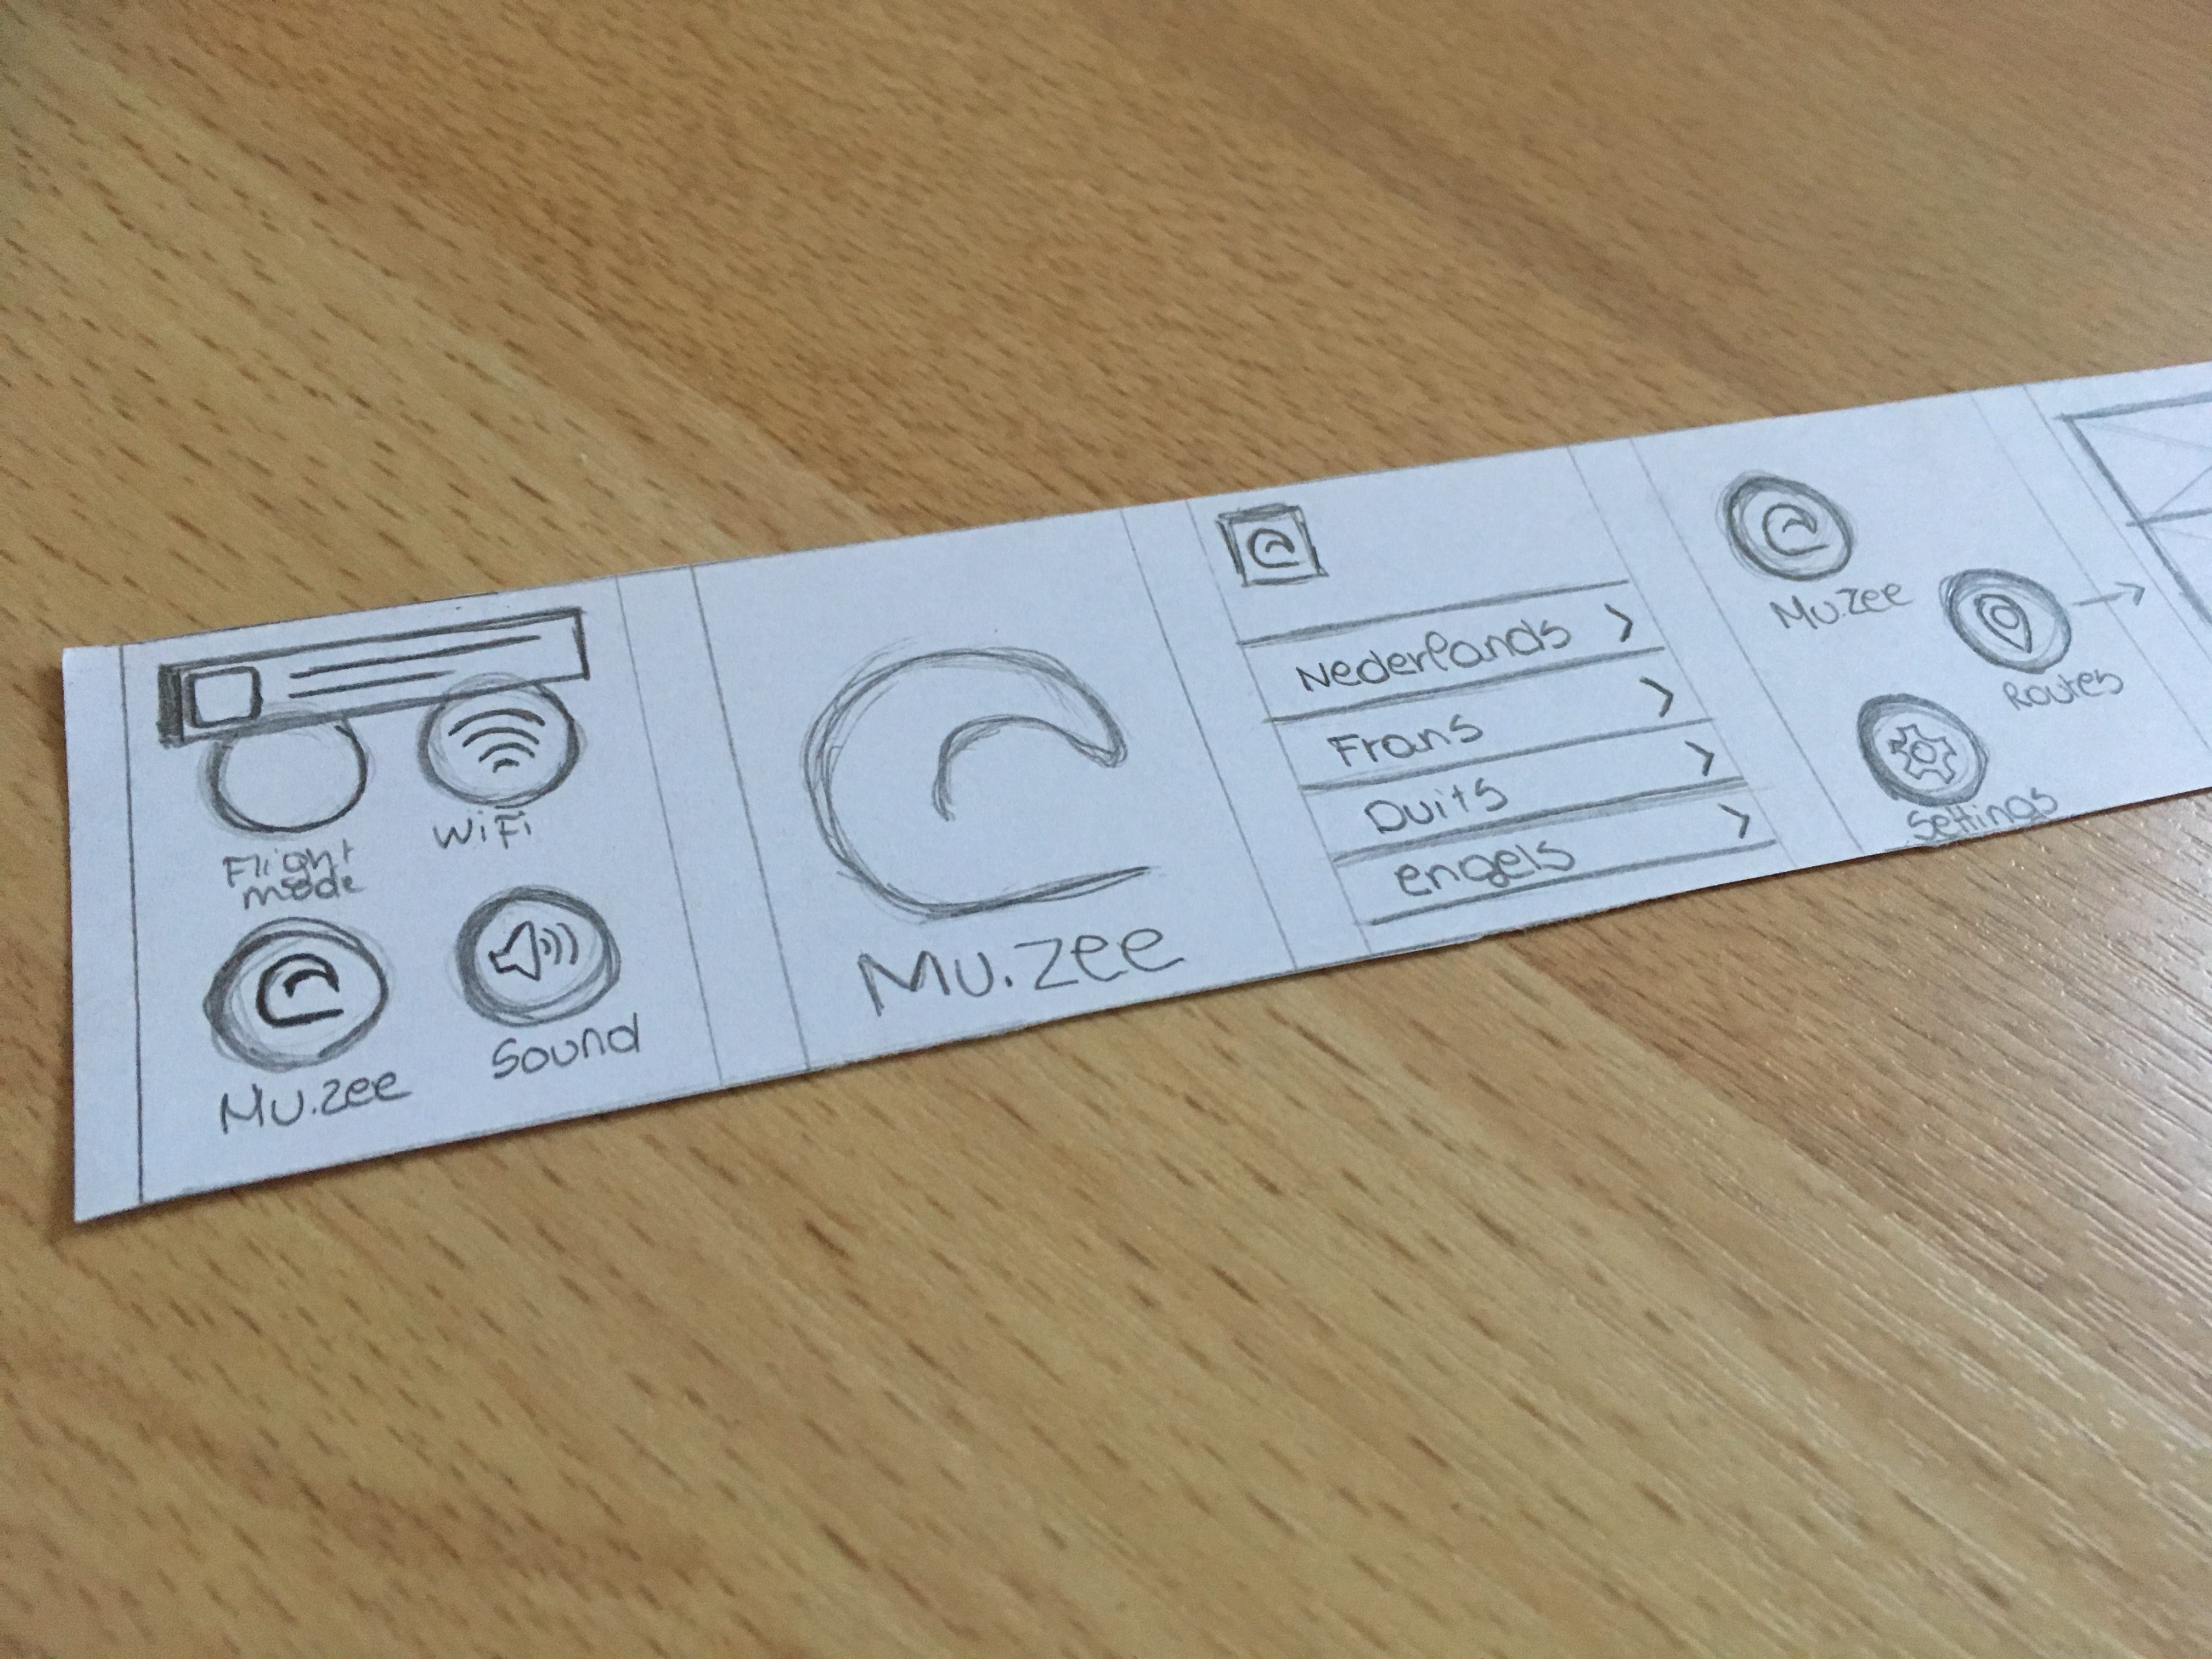 Flight
mode
WiFi
Mu.zee
Sound
Mu.zee
Nederlands
Frans
Duits
engels
Mu.zee
Routes
Settings